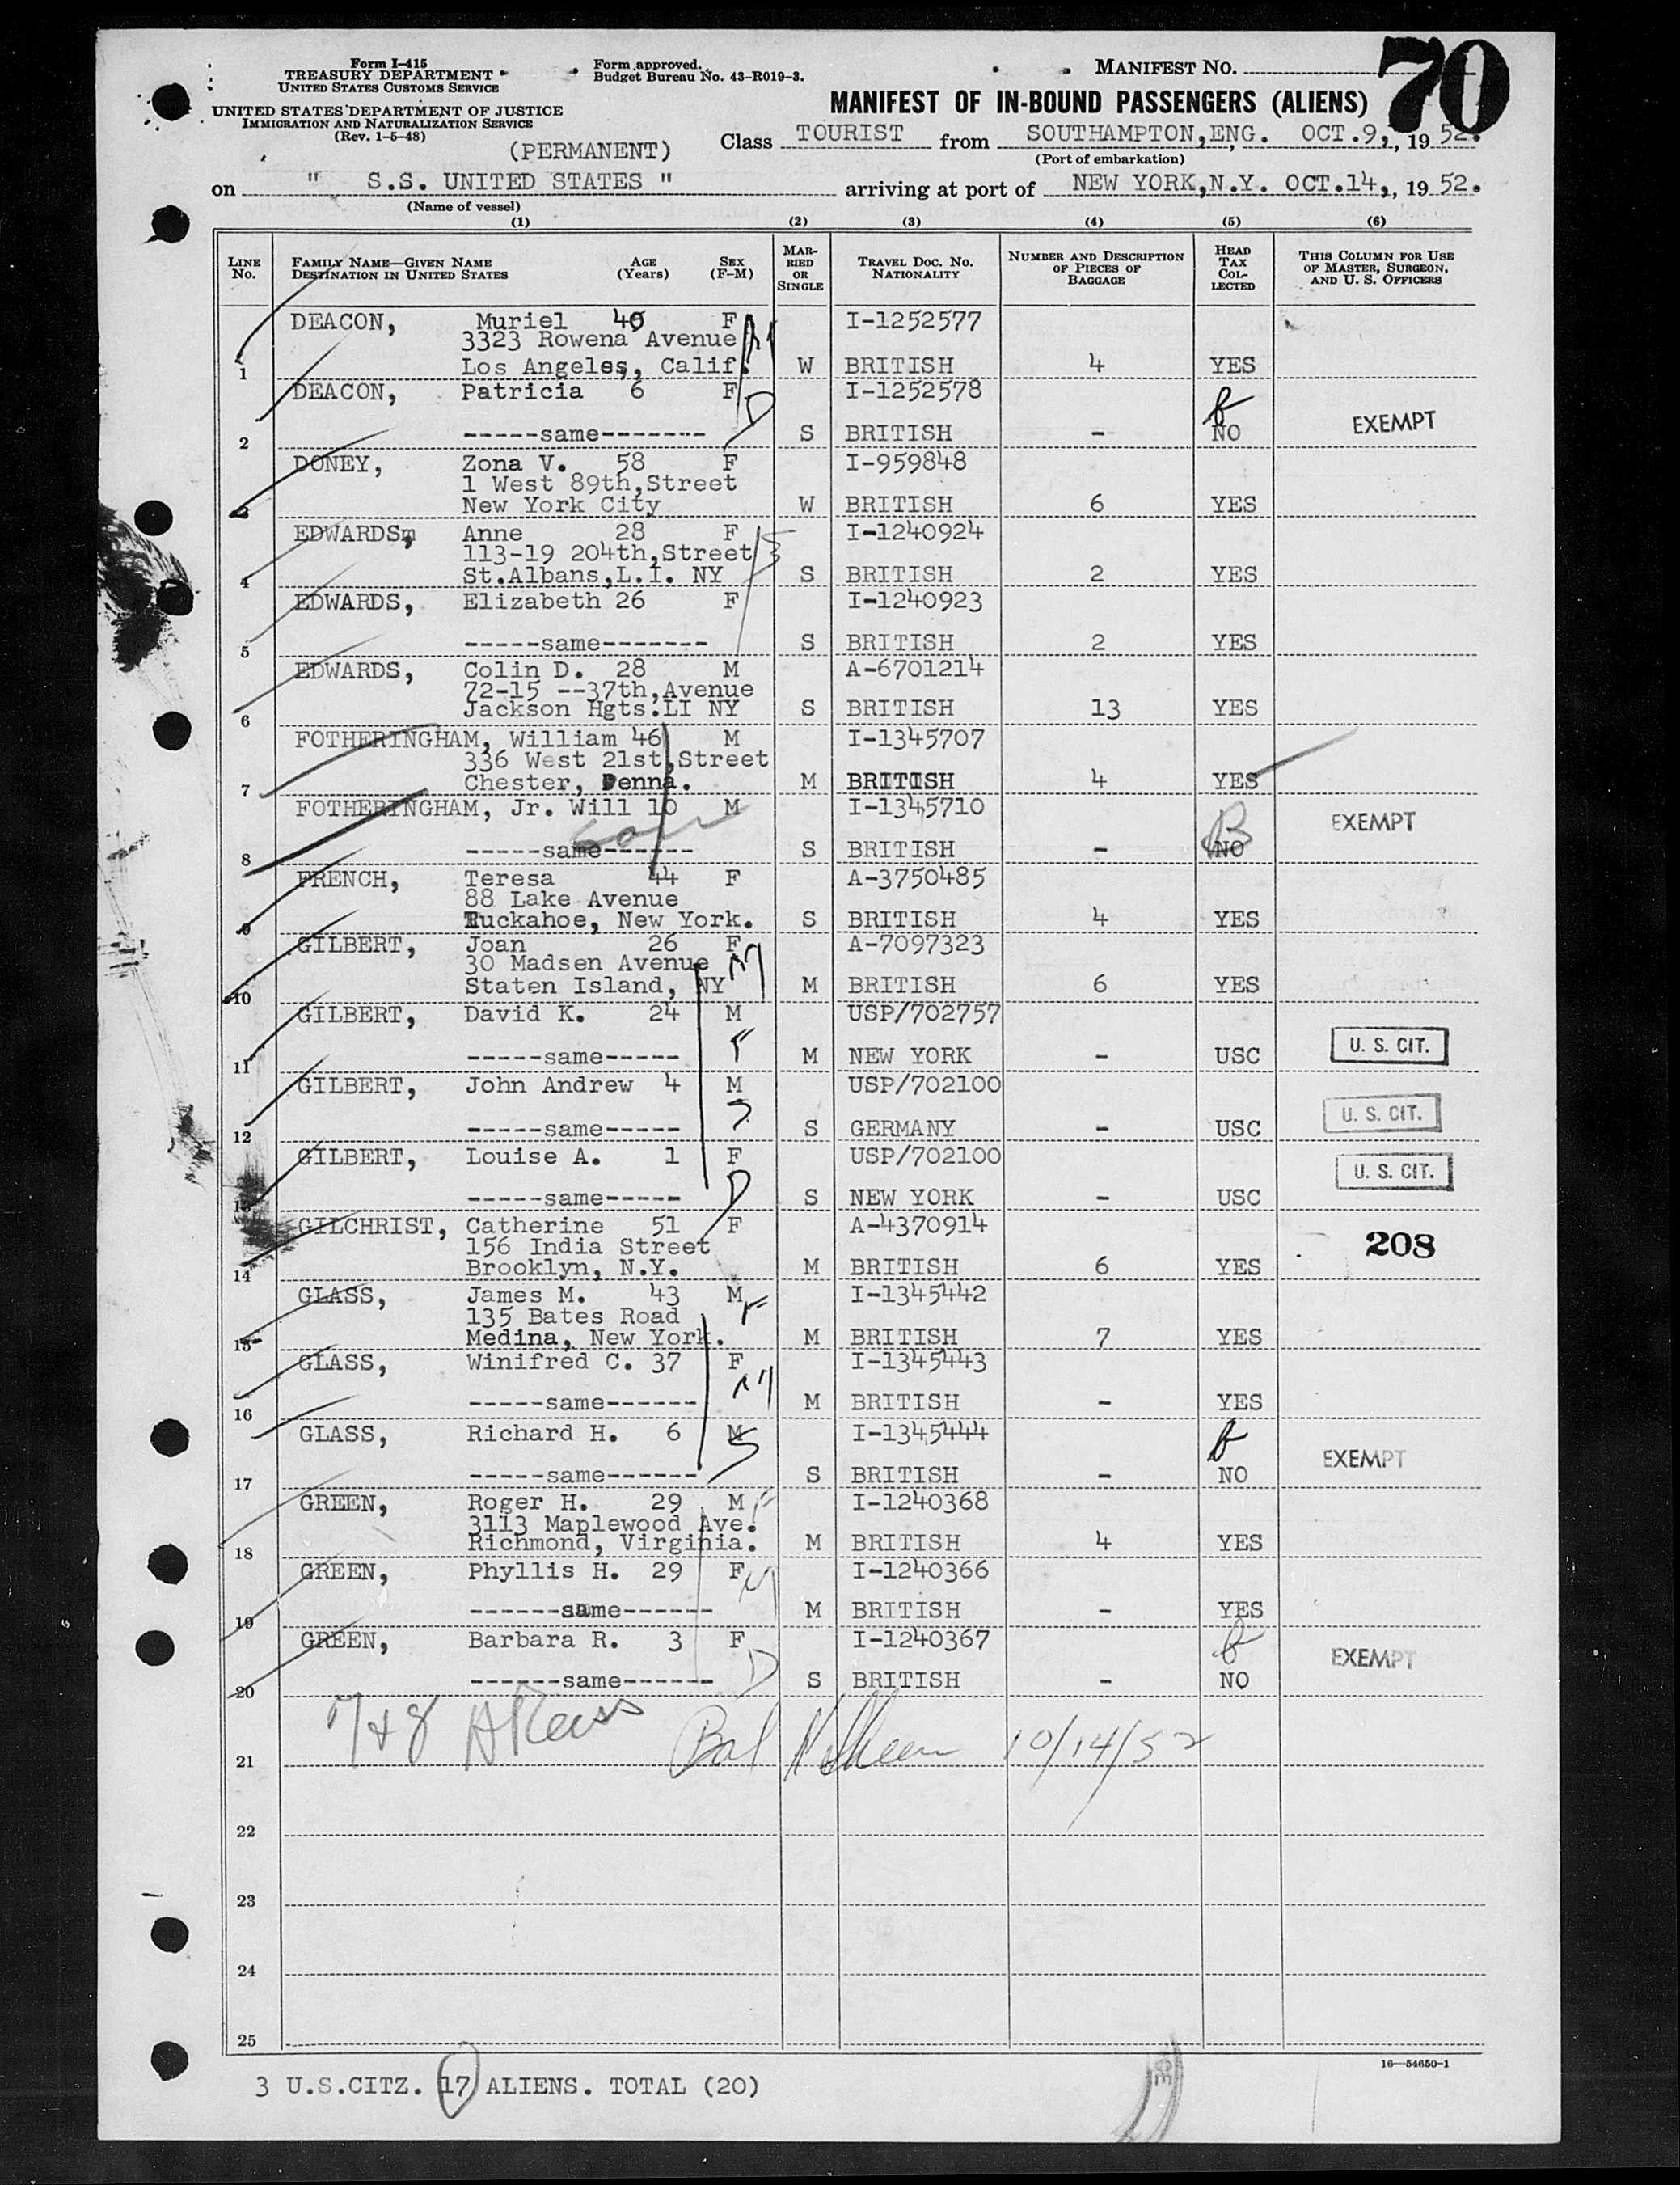 70
Form I-415
TREASURY DEPARTMENT
UNITED STATES CUSTOMS SERVICE
Form approved.
Budget Bureau No. 43-R019-3.
MANIFEST NO.
UNITED STATES DEPARTMENT OF JUSTICE
IMMIGRATION AND NATURALIZATION SERVICE
(Rev. 1-5-48)
MANIFEST OF IN-BOUND PASSENGERS (ALIENS)
(PERMANENT)
Class TOURIST from SOUTHAMPTON,ENG. OCT.9,, 19 52.
(Port of embarkation)
on " S.S. UNITED STATES " arriving at port of NEW YORK,N.Y. OCT.14,, 19 52.
(Name of vessel)
(1) (2) (3) (4) (5) (6)
LINE No. FAMILY NAME—GIVEN NAME DESTINATION IN UNITED STATES AGE (Years) SEX (F-M) MARRIED OR SINGLE TRAVEL DOC. NO. NATIONALITY NUMBER AND DESCRIPTION OF PIECES OF BAGGAGE HEAD TAX COLLECTED THIS COLUMN FOR USE OF MASTER, SURGEON, AND U. S. OFFICERS
DEACON, Muriel F I-1252577
3323 Rowena Avenue M
1 Los Angeles, Calif. W BRITISH 4 YES
DEACON, Patricia 6 F I-1252578
D EXEMPT
2 -----same------- S BRITISH - NO
DONEY, Zona V. 58 F I-959848
1 West 89th,Street
3 New York City W BRITISH 6 YES
EDWARDSm, Anne 28 F I-1240924
113-19 204th,Street
4 St.Albans,L.I. NY S BRITISH 2 YES
EDWARDS, Elizabeth 26 F I-1240923
5 -----same------- S BRITISH 2 YES
EDWARDS, Colin D. 28 M A-6701214
72-15 --37th,Avenue
6 Jackson Hgts.LI NY S BRITISH 13 YES
FOTHERINGHAM, William 46 M I-1345707
336 West 21st,Street
7 Chester, Penna. M BRITISH 4 YES
FOTHERINGHAM, Jr. Will 10 M I-1345710
son EXEMPT
8 -----same------ S BRITISH - NO
FRENCH, Teresa 44 F A-3750485
88 Lake Avenue
9 Tuckahoe, New York. S BRITISH 4 YES
GILBERT, Joan 26 F A-7097323
30 Madsen Avenue M
10 Staten Island, NY M BRITISH 6 YES
GILBERT, David K. 24 M USP/702757
F U. S. CIT.
11 -----same----- M NEW YORK - USC
GILBERT, John Andrew 4 M USP/702100
U. S. CIT.
12 -----same----- S GERMANY - USC
GILBERT, Louise A. 1 F USP/702100
D U. S. CIT.
13 -----same----- S NEW YORK - USC
GILCHRIST, Catherine 51 F A-4370914
156 India Street 208
14 Brooklyn, N.Y. M BRITISH 6 YES
GLASS, James M. 43 M F I-1345442
135 Bates Road
15 Medina, New York. M BRITISH 7 YES
GLASS, Winifred C. 37 F I-1345443
M
16 -----same------ M BRITISH - YES
GLASS, Richard H. 6 M I-1345444
S EXEMPT
17 -----same------ S BRITISH - NO
GREEN, Roger H. 29 M F I-1240368
3113 Maplewood Ave.
18 Richmond, Virginia. M BRITISH 4 YES
GREEN, Phyllis H. 29 F M I-1240366
19 ------same------ M BRITISH - YES
GREEN, Barbara R. 3 F I-1240367
D EXEMPT
20 ------same------ S BRITISH - NO
7 & 8 10/14/52
21
22
23
24
25
16—54650-1
3 U.S.CITZ. 17 ALIENS. TOTAL (20)